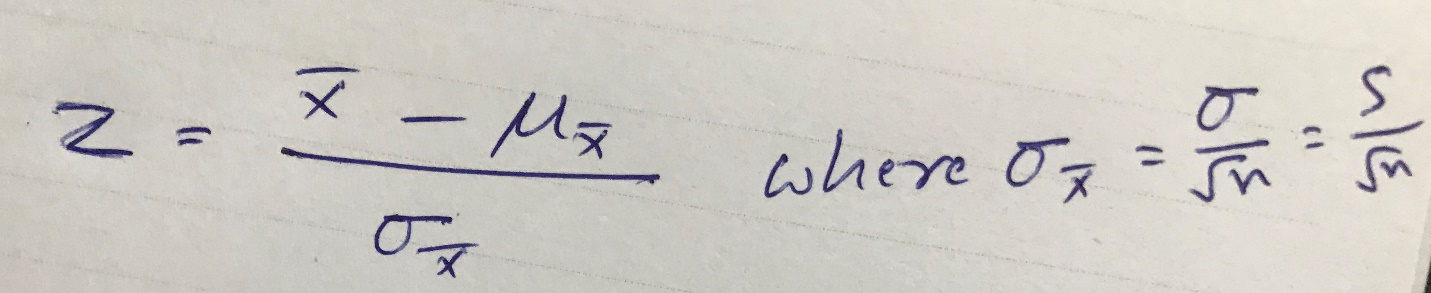 z = (x̄ − μ_x̄) / σ_x̄ where σ_x̄ = σ/√n = s/√n